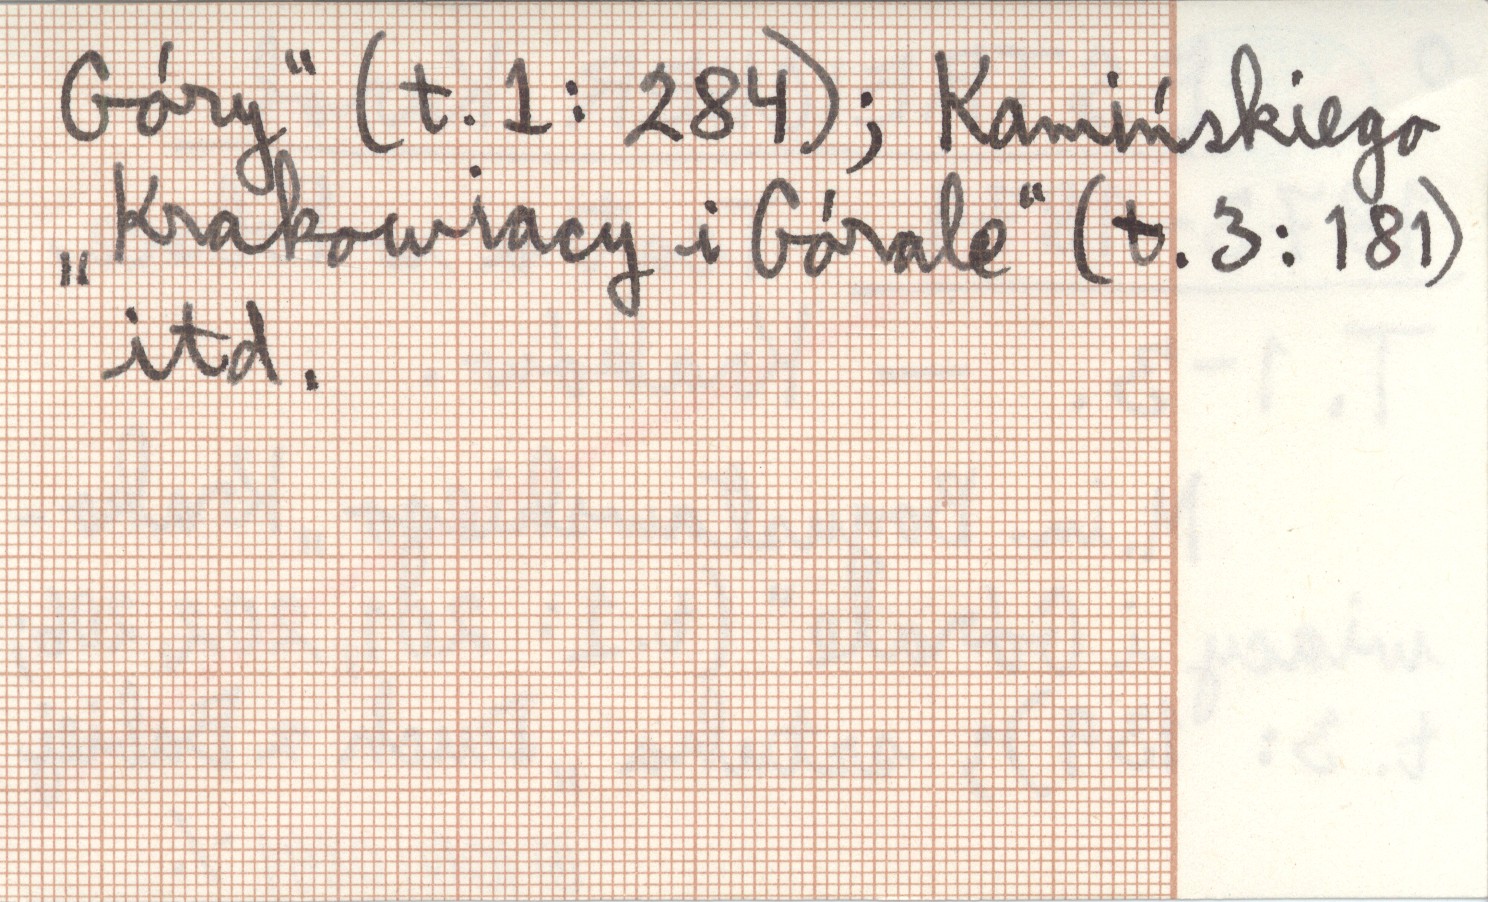 Góry" (t. 1: 284); Kamińskiego
„Krakowiacy i Górale" (t. 3: 181)
itd.